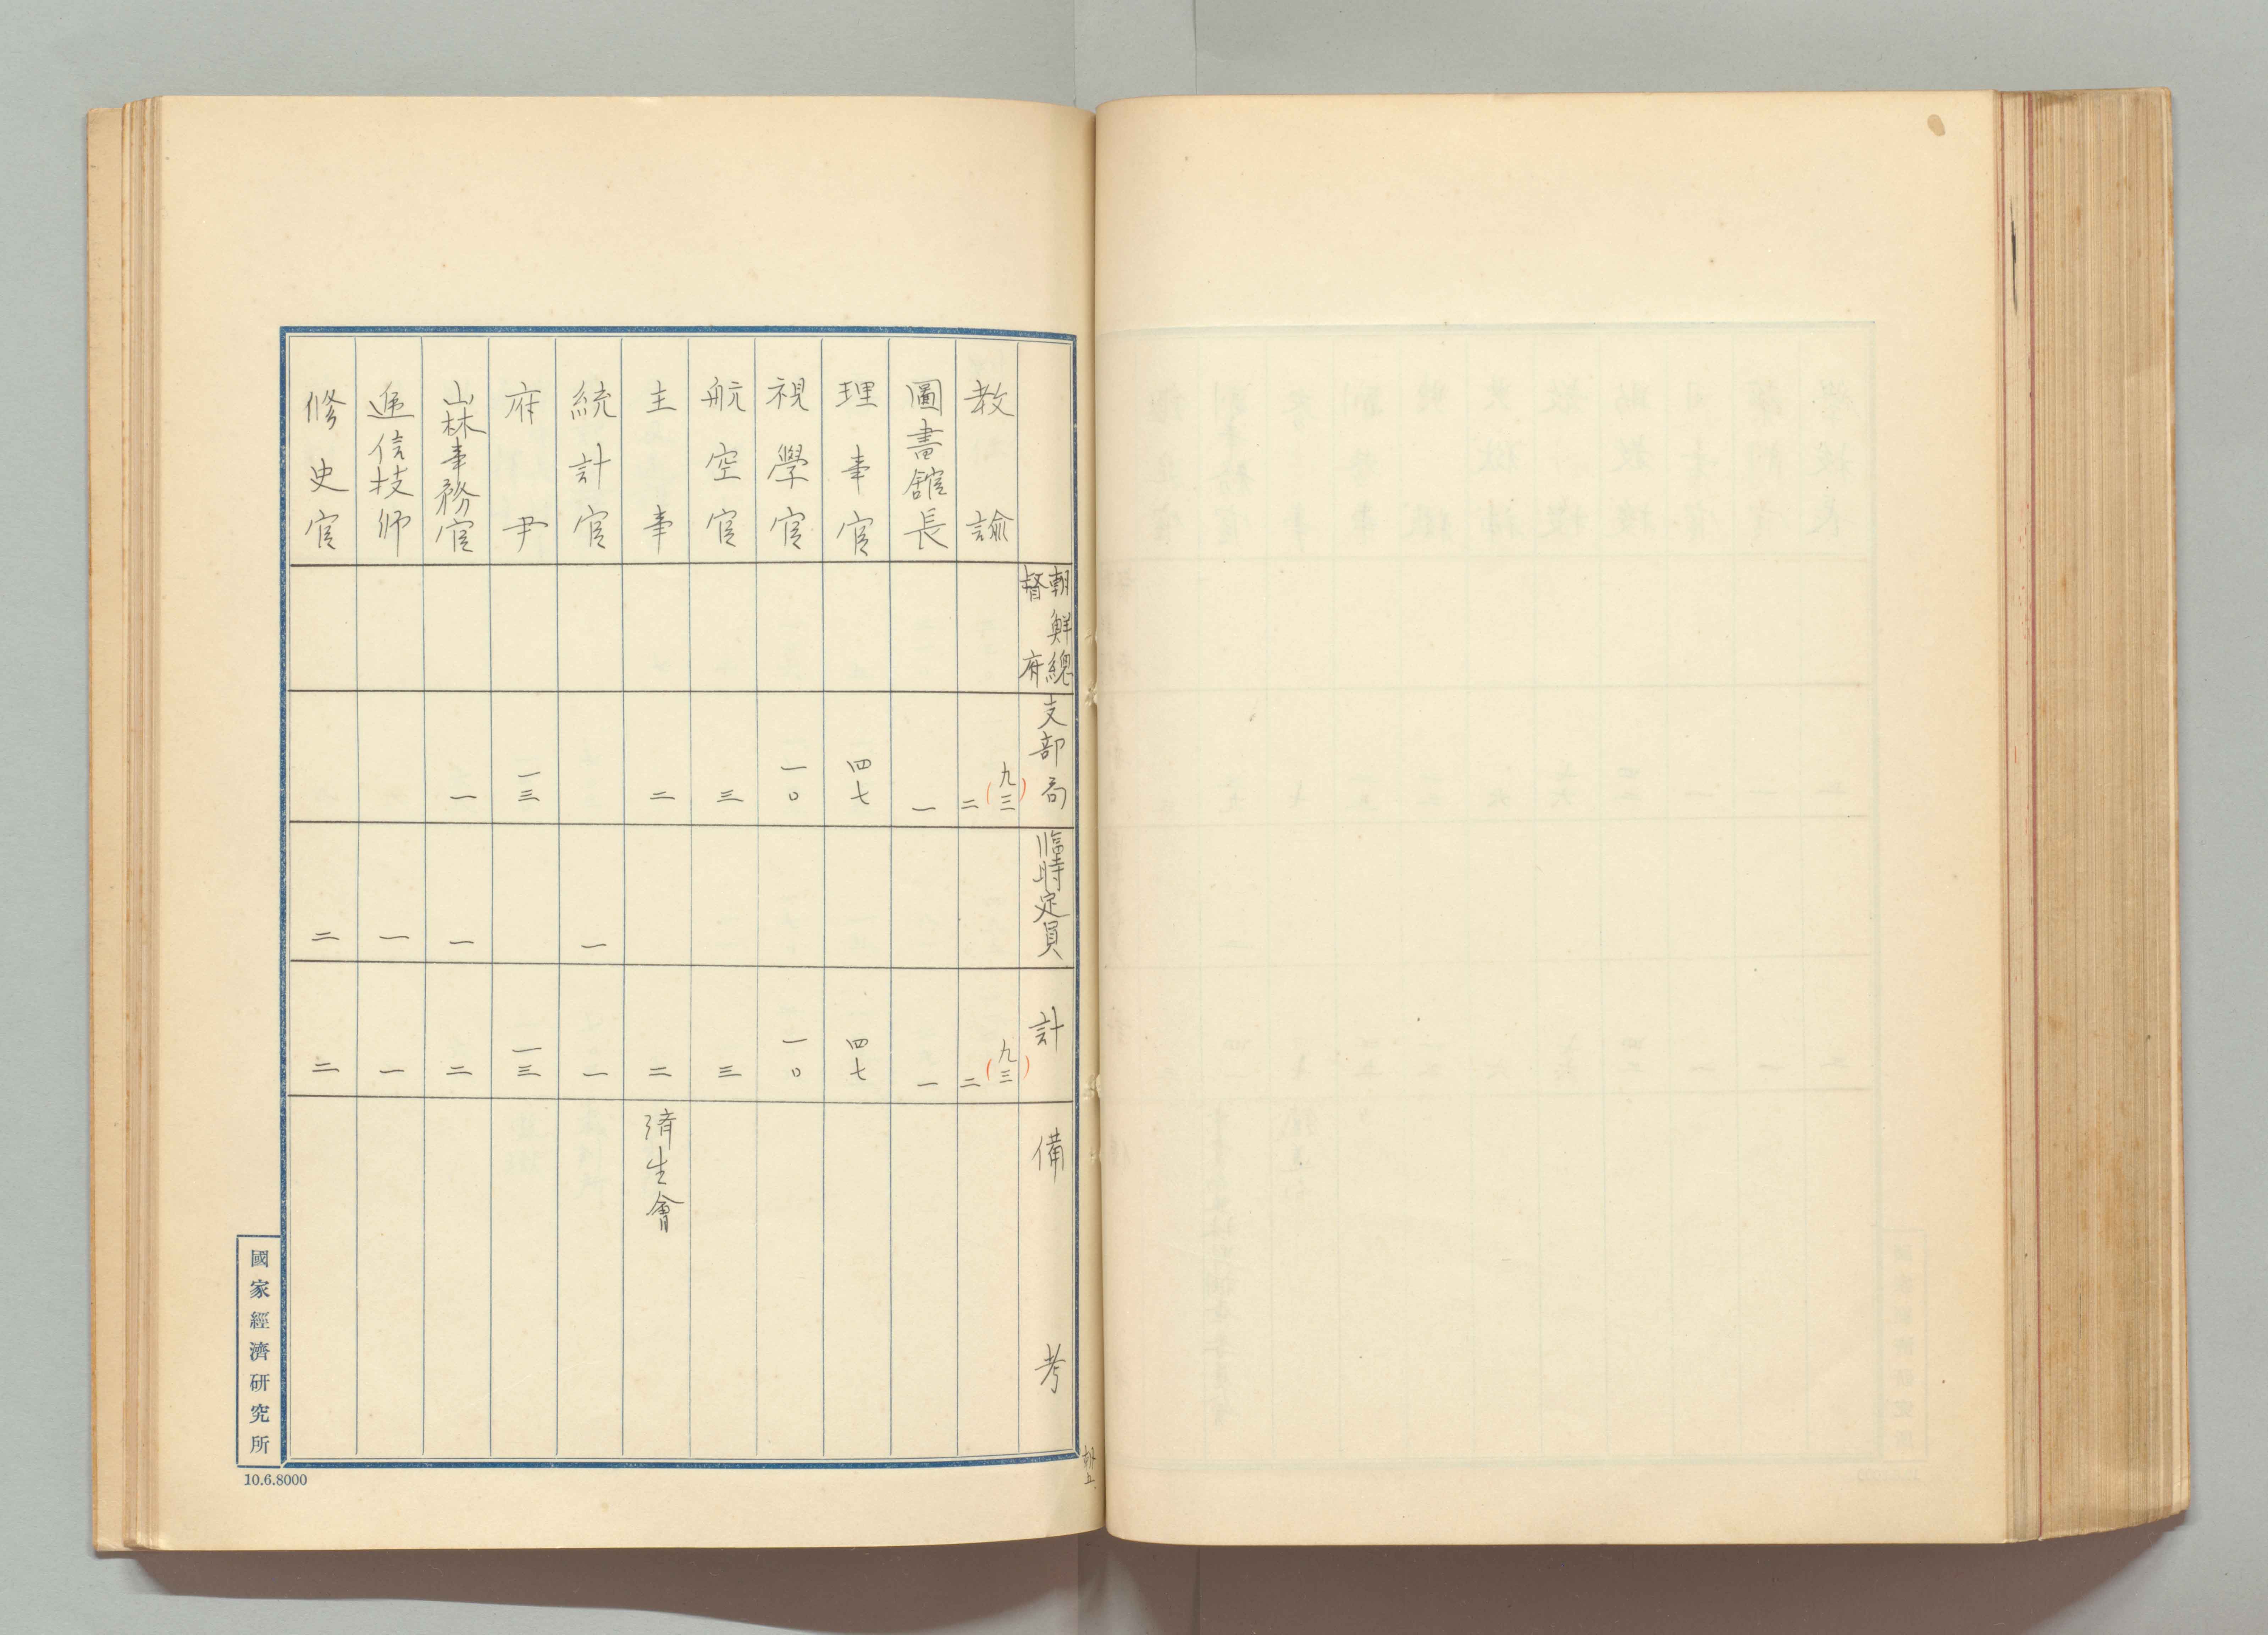 朝鮮總督府
支部局
臨時定員
計
備考
教諭 (九三)二 (九三)二
圖書舘長 一 一
理事官 四七 四七
視學官 一〇 一〇
航空官 三 三
主事 二 二 済生會
統計官 一 一
府尹 一三 一三
山林事務官 一 一 二
逓信技師 一 一
修史官 二 二
國家經濟研究所
10.6.8000